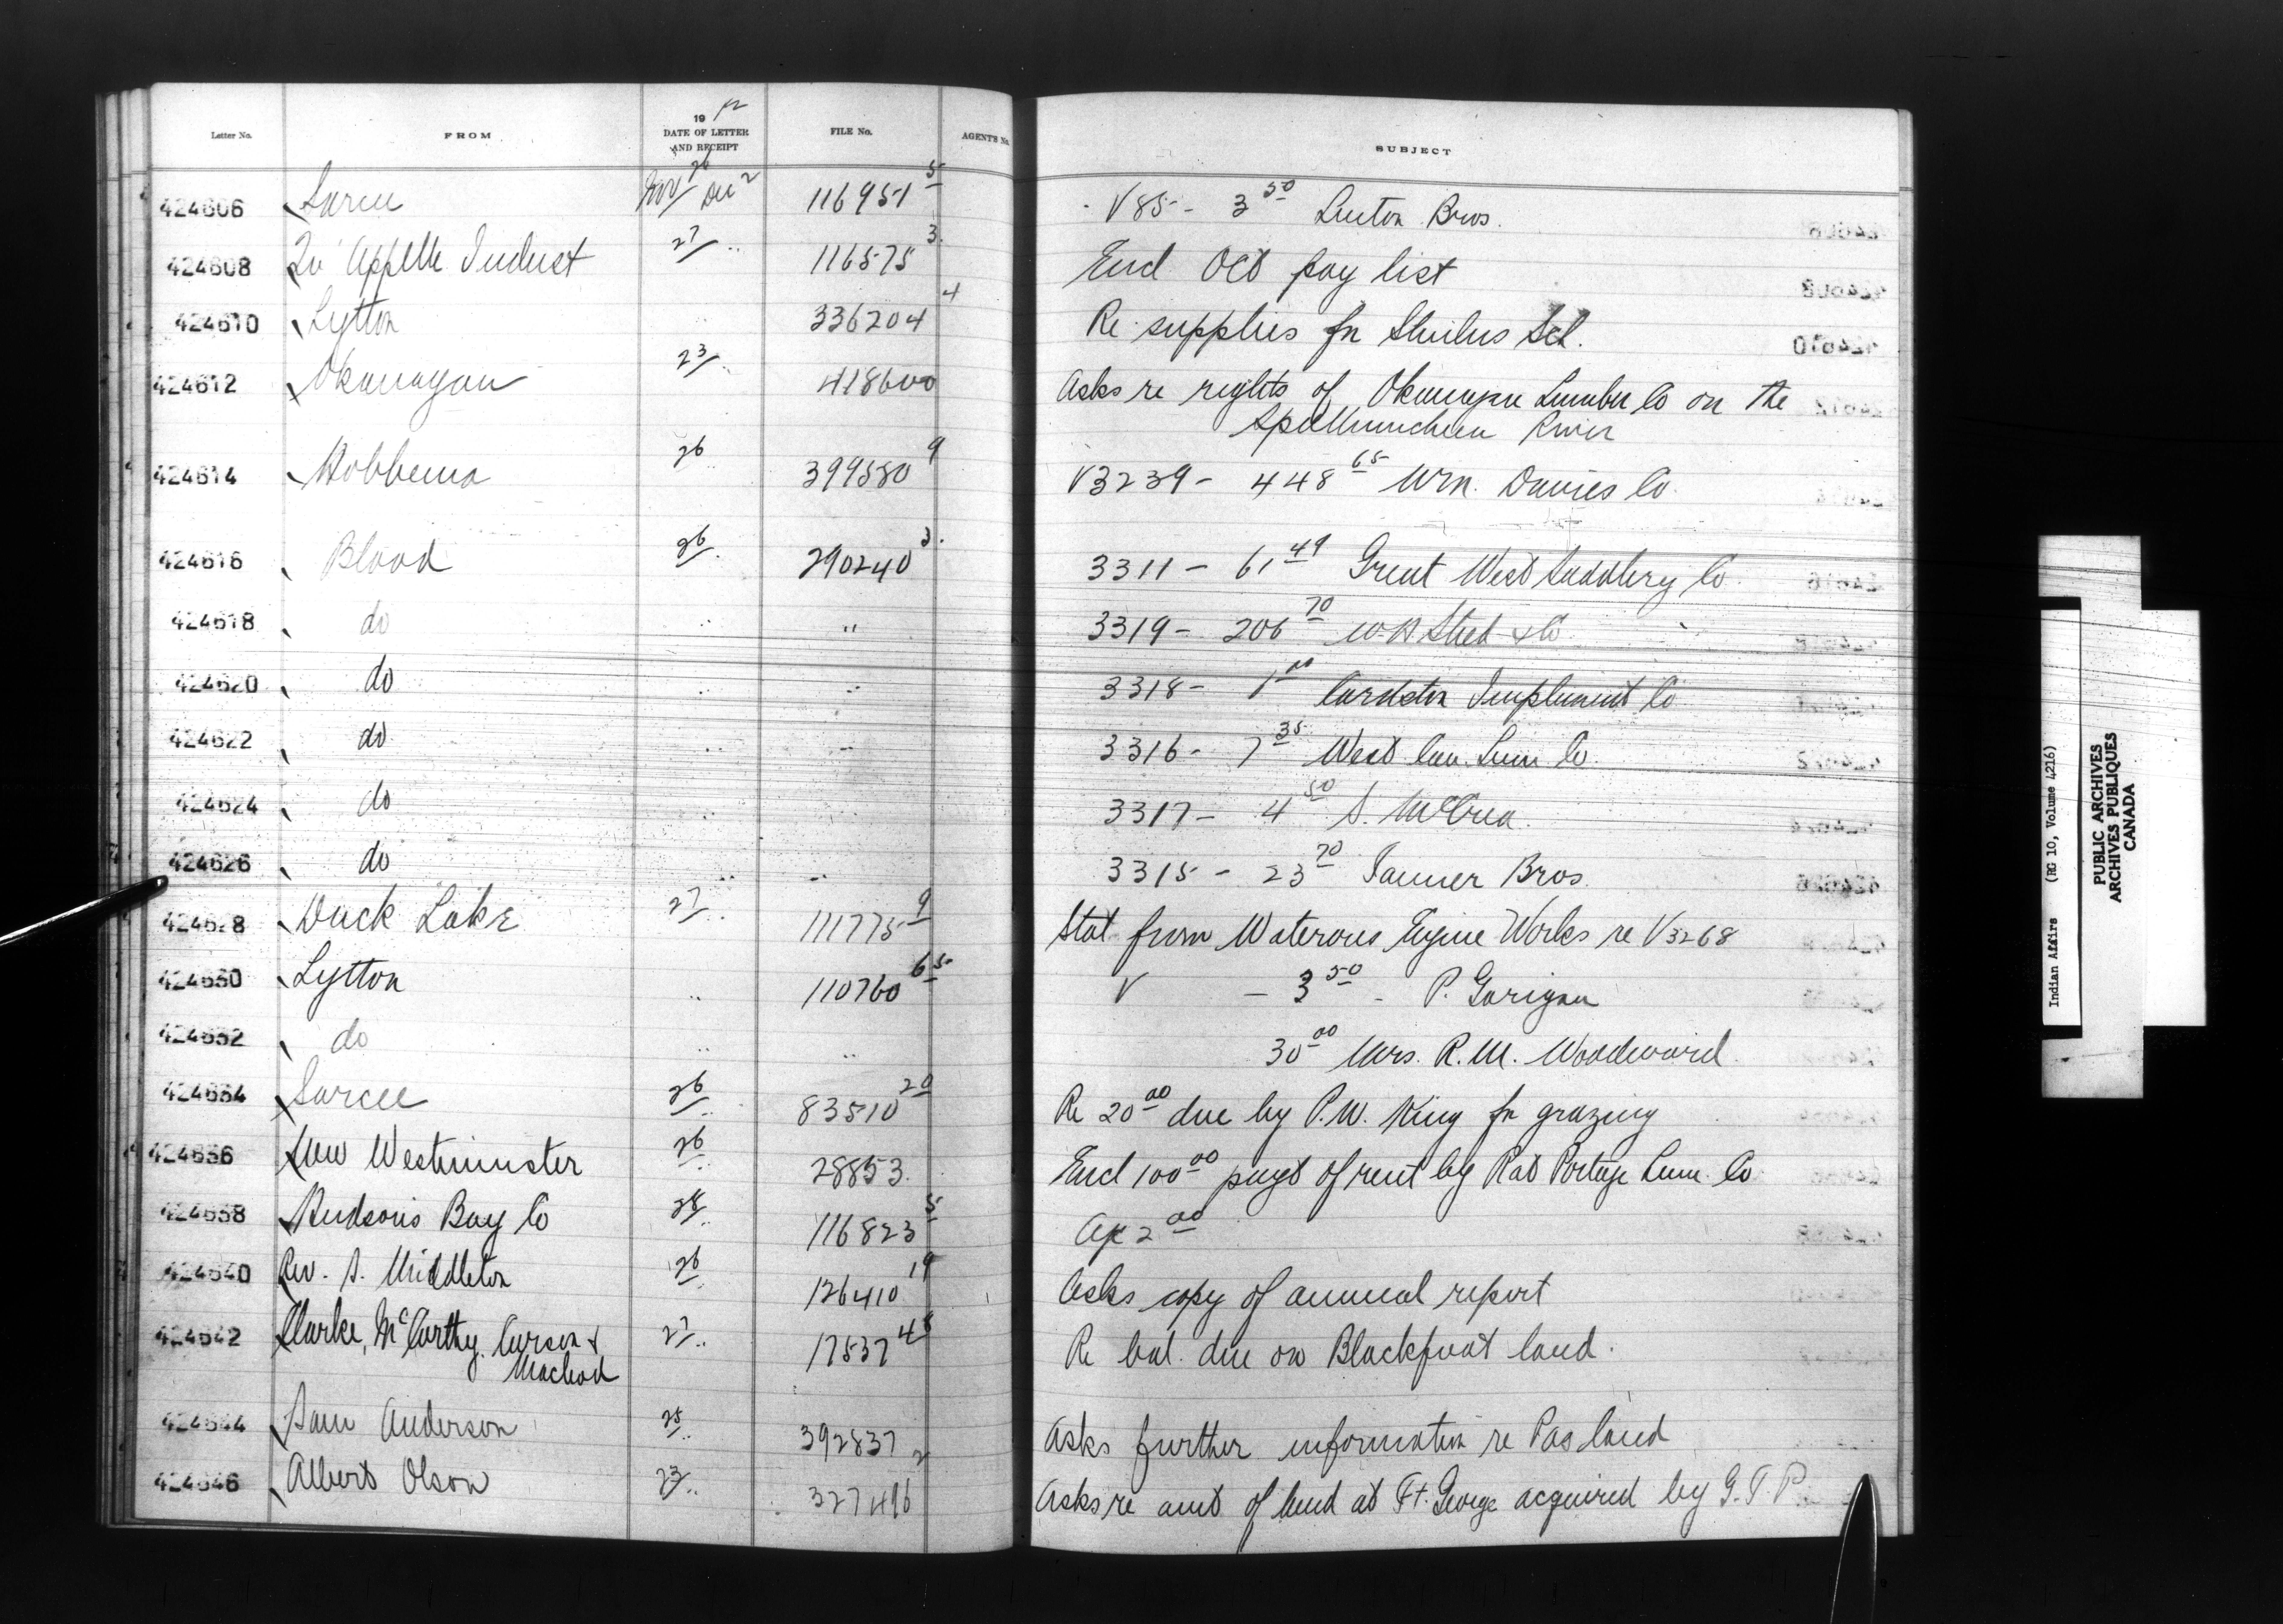 Letter No. FROM 19 12 DATE OF LETTER AND RECEIPT FILE No. AGENT'S No. SUBJECT
424606 Sarcee Nov 26 Dec 2 116951 5 V 85 - 3 50 Linton Bros.
424608 Qu'Appelle Indust 27 " 116575 3 Encl Oct pay list
424610 Lytton " 336204 4 Re supplies fr Shulus Sch.
424612 Okanagan 23 " 418600 Asks re rights of Okanagan Lumber Co on the
Spallumcheen River
424614 Hobbema 26 " 399580 9 V3239 - 448 65 Wm. Davies Co.
424616 Blood 26 " 290240 3 3311 - 61 49 Great West Saddlery Co.
424618 do " " 3319 - 206 70 W.H. Steed & Co
424620 do " " 3318 - 1 00 Cardston Implement Co
424622 do " " 3316 - 7 35 West Can. Lum Co.
424624 do 3317 - 4 50 S. McCrea.
424626 do " " 3315 - 23 70 Tanner Bros.
424628 Duck Lake 27 " 111775 9 Stat from Waterous Engine Works re V3268
424630 Lytton " 110760 65 V - 3 50 - P. Garigan
424632 do " " 30 00 Mrs. R.M. Woodward.
424634 Sarcee 26 " 83510 20 Re 20 00 due by P.W. King fr grazing
424636 New Westminster 26 " 28853. Encl 100 00 payt of rent by Rat Portage Lum. Co
424638 Hudson's Bay Co 28 " 116823 5 a/c 2 00
424640 Rev. S. Middleton 26 " 126410 19 Asks copy of annual report
424642 Clarke, McCarthy, Carson & 27 " 17537 48 Re bal. due on Blackfoot land.
Macleod
424644 Sam Anderson 25 " 392837 Asks further information re Pas land
424646 Albert Olson 23 " 327496 2 Asks re amt of land at Ft. George acquired by G.T.P.
Indian Affairs (RG 10, Volume 4216)
PUBLIC ARCHIVES
ARCHIVES PUBLIQUES
CANADA